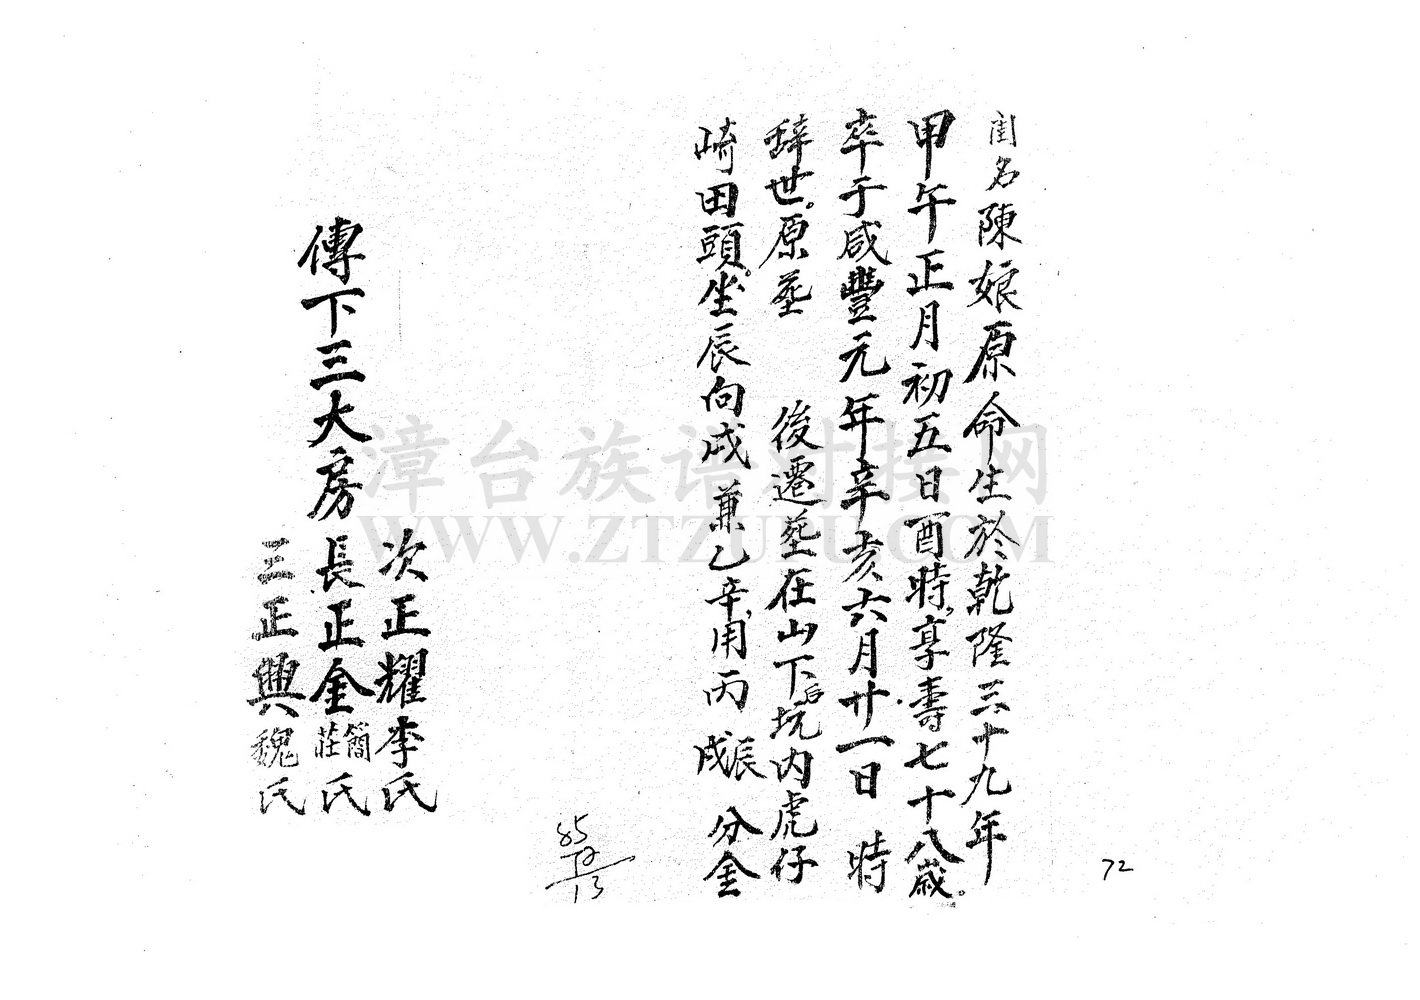 閨名陳娘原命生於乾隆三十九年
甲午正月初五日酉時，享壽七十八歲。
卒于咸豐元年辛亥六月廿一日 時
辞世。原葬 後遷葬在山下后坑内虎仔
崎田頭。坐辰向戍兼乙辛，用丙辰戍分金
次正耀李氏
傳下三大房長正金簡莊氏
三正興魏氏
85
72
13
72
漳台族谱对接网
WWW.ZTZUPU.COM